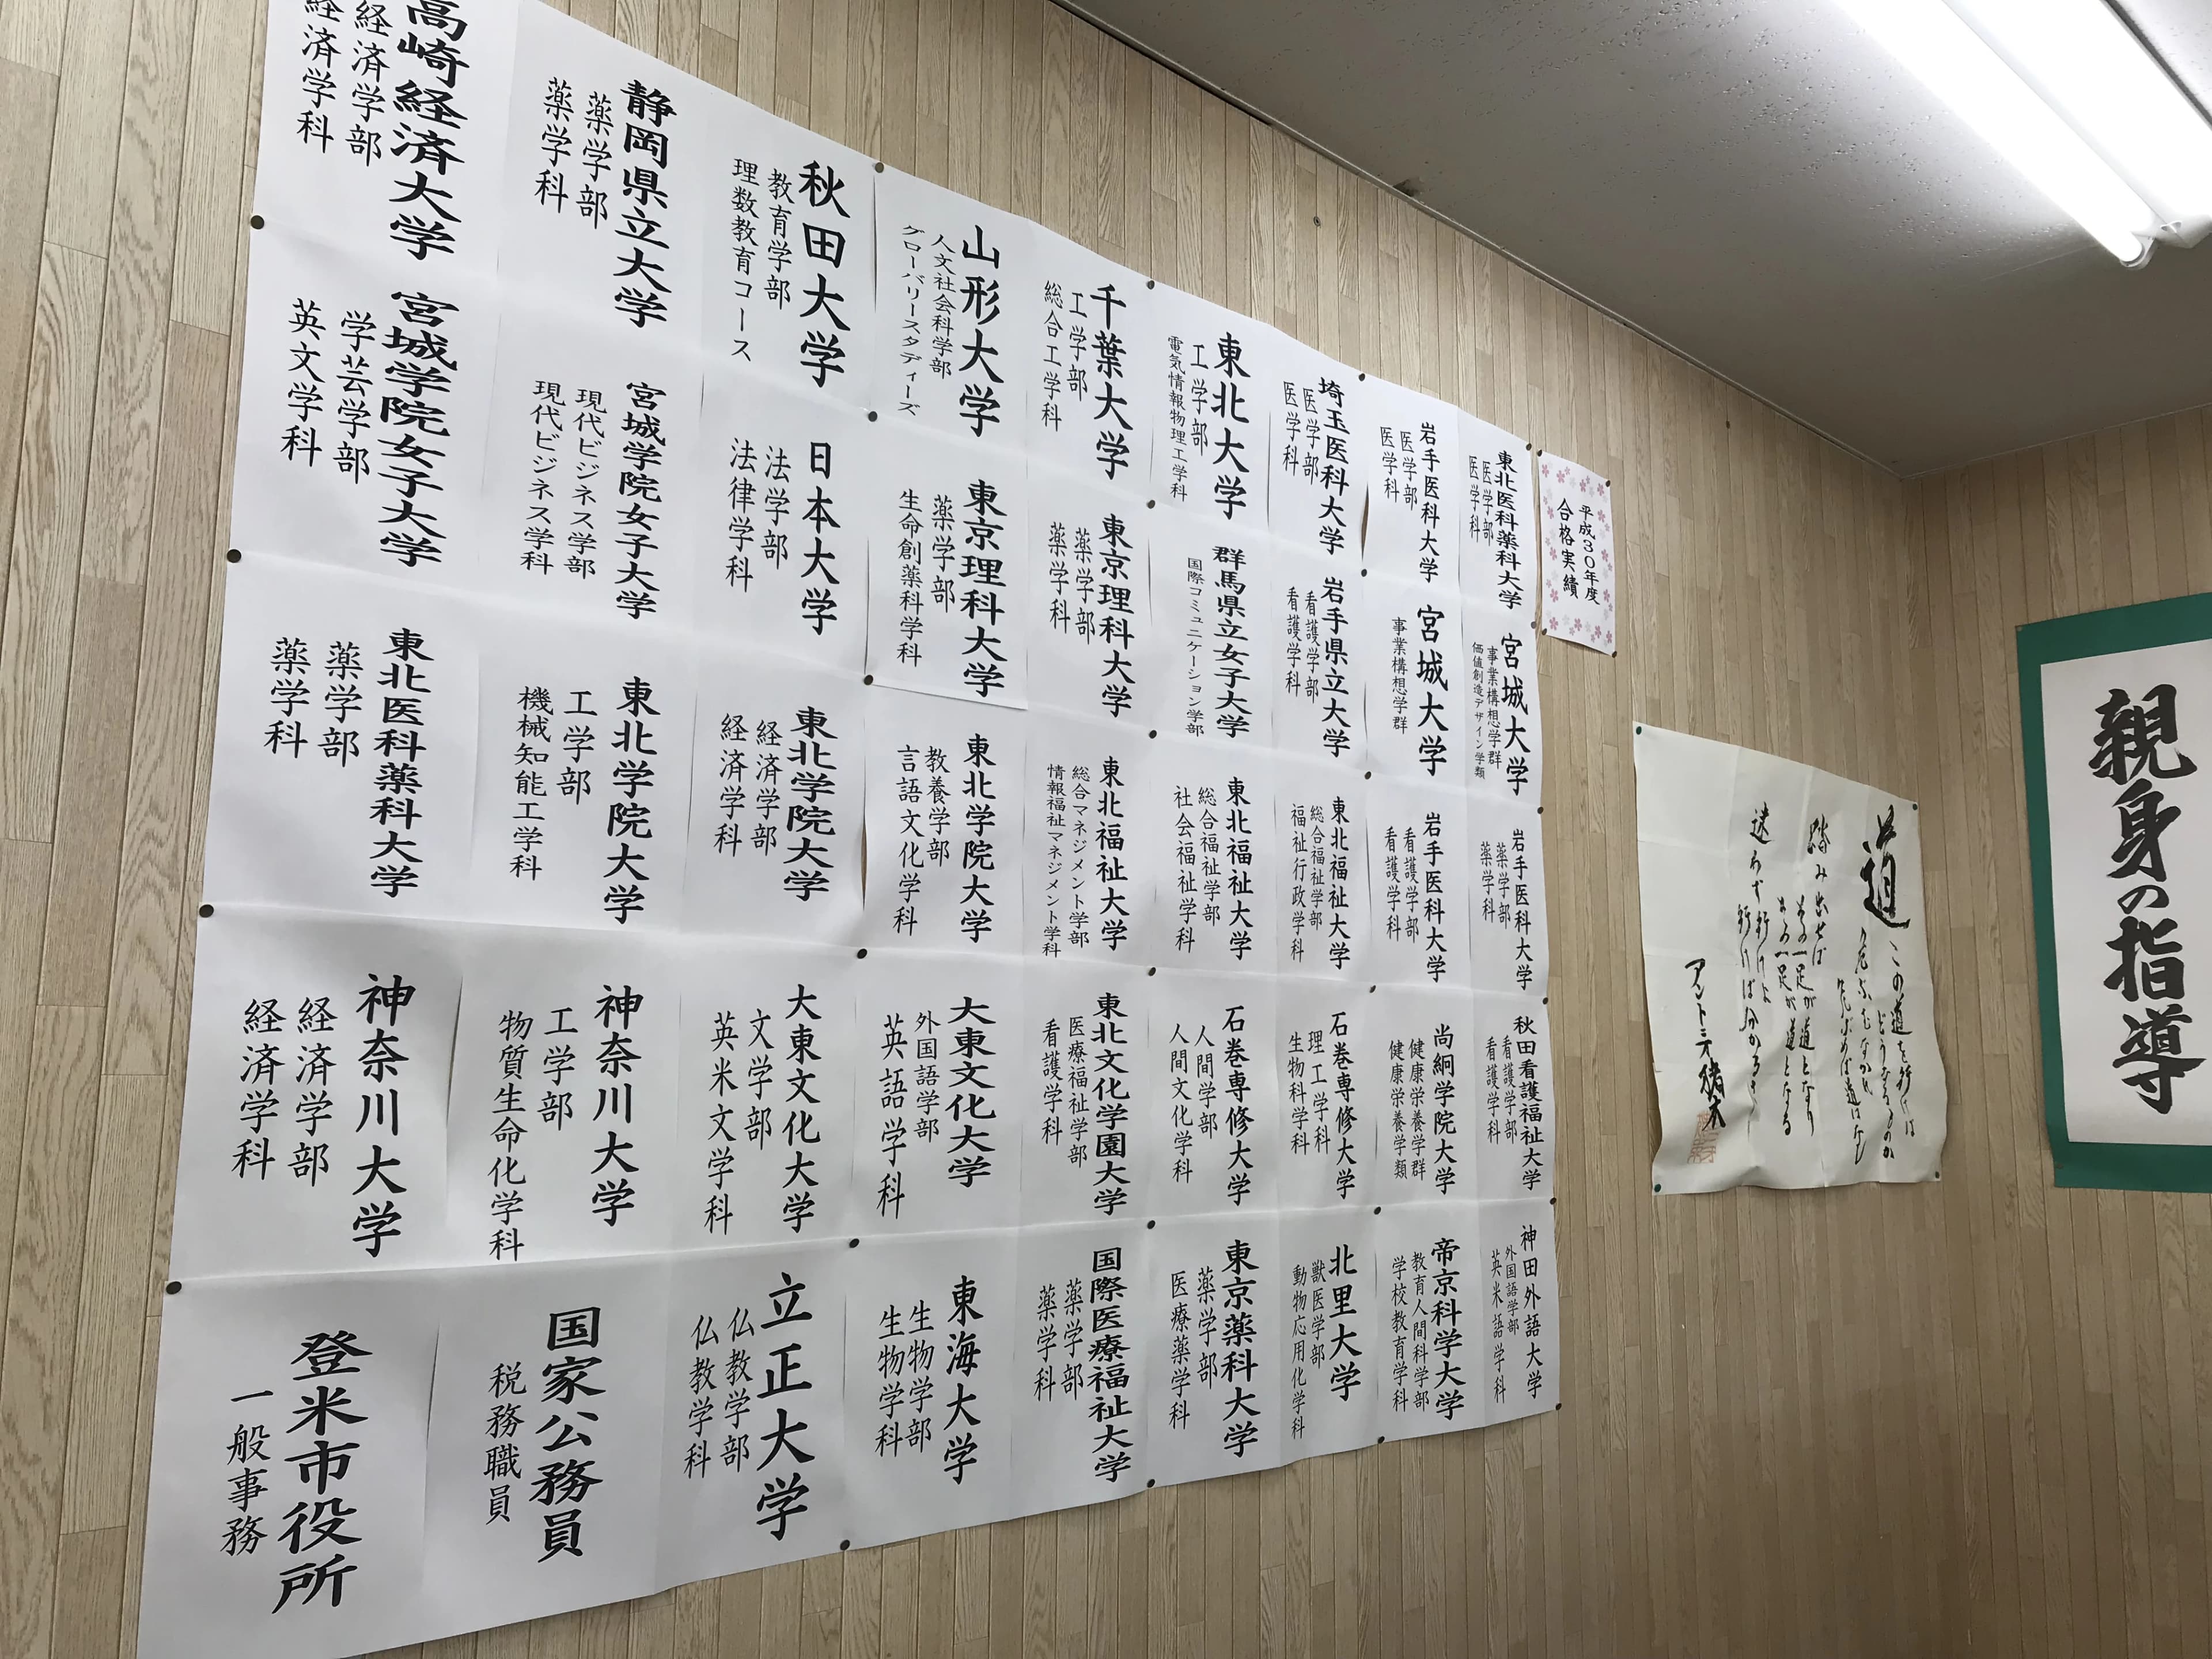 親身の指導
道
この道を行けば
どうなるものか
危ぶむなかれ
危ぶめば道はなし
踏み出せば
その一足が道となり
その一足が道となる
迷わず行けよ
行けばわかるさ
アントニオ猪木
平成30年度
合格実績
東北医科薬科大学
医学部
医学科
岩手医科大学
医学部
医学科
埼玉医科大学
医学部
医学科
東北大学
工学部
電気情報物理工学科
千葉大学
工学部
総合工学科
山形大学
人文社会科学部
グローバリースタディーズ
秋田大学
教育学部
理数教育コース
静岡県立大学
薬学部
薬学科
高崎経済大学
経済学部
経済学科
宮城大学
事業構想学群
価値創造デザイン学類
宮城大学
事業構想学群
岩手県立大学
看護学部
看護学科
群馬県立女子大学
国際コミュニケーション学部
東京理科大学
薬学部
薬学科
東京理科大学
薬学部
生命創薬科学科
日本大学
法学部
法律学科
宮城学院女子大学
現代ビジネス学部
現代ビジネス学科
宮城学院女子大学
学芸学部
英文学科
岩手医科大学
薬学部
薬学科
岩手医科大学
看護学部
看護学科
東北福祉大学
総合福祉学部
福祉行政学科
東北福祉大学
総合福祉学部
社会福祉学科
東北福祉大学
総合マネジメント学部
情報福祉マネジメント学科
東北学院大学
教養学部
言語文化学科
東北学院大学
経済学部
経済学科
東北学院大学
工学部
機械知能工学科
東北医科薬科大学
薬学部
薬学科
秋田看護福祉大学
看護学部
看護学科
尚絅学院大学
健康栄養学群
健康栄養学類
石巻専修大学
理工学科
生物科学科
石巻専修大学
人間学部
人間文化学科
東北文化学園大学
医療福祉学部
看護学科
大東文化大学
外国語学部
英語学科
大東文化大学
文学部
英米文学科
神奈川大学
工学部
物質生命化学科
神奈川大学
経済学部
経済学科
神田外語大学
外国語学部
英米語学科
帝京科学大学
教育人間科学部
学校教育学科
北里大学
獣医学部
動物応用化学科
東京薬科大学
薬学部
医療薬学科
国際医療福祉大学
薬学部
薬学科
東海大学
生物学部
生物学科
立正大学
仏教学部
仏教学科
国家公務員
税務職員
登米市役所
一般事務